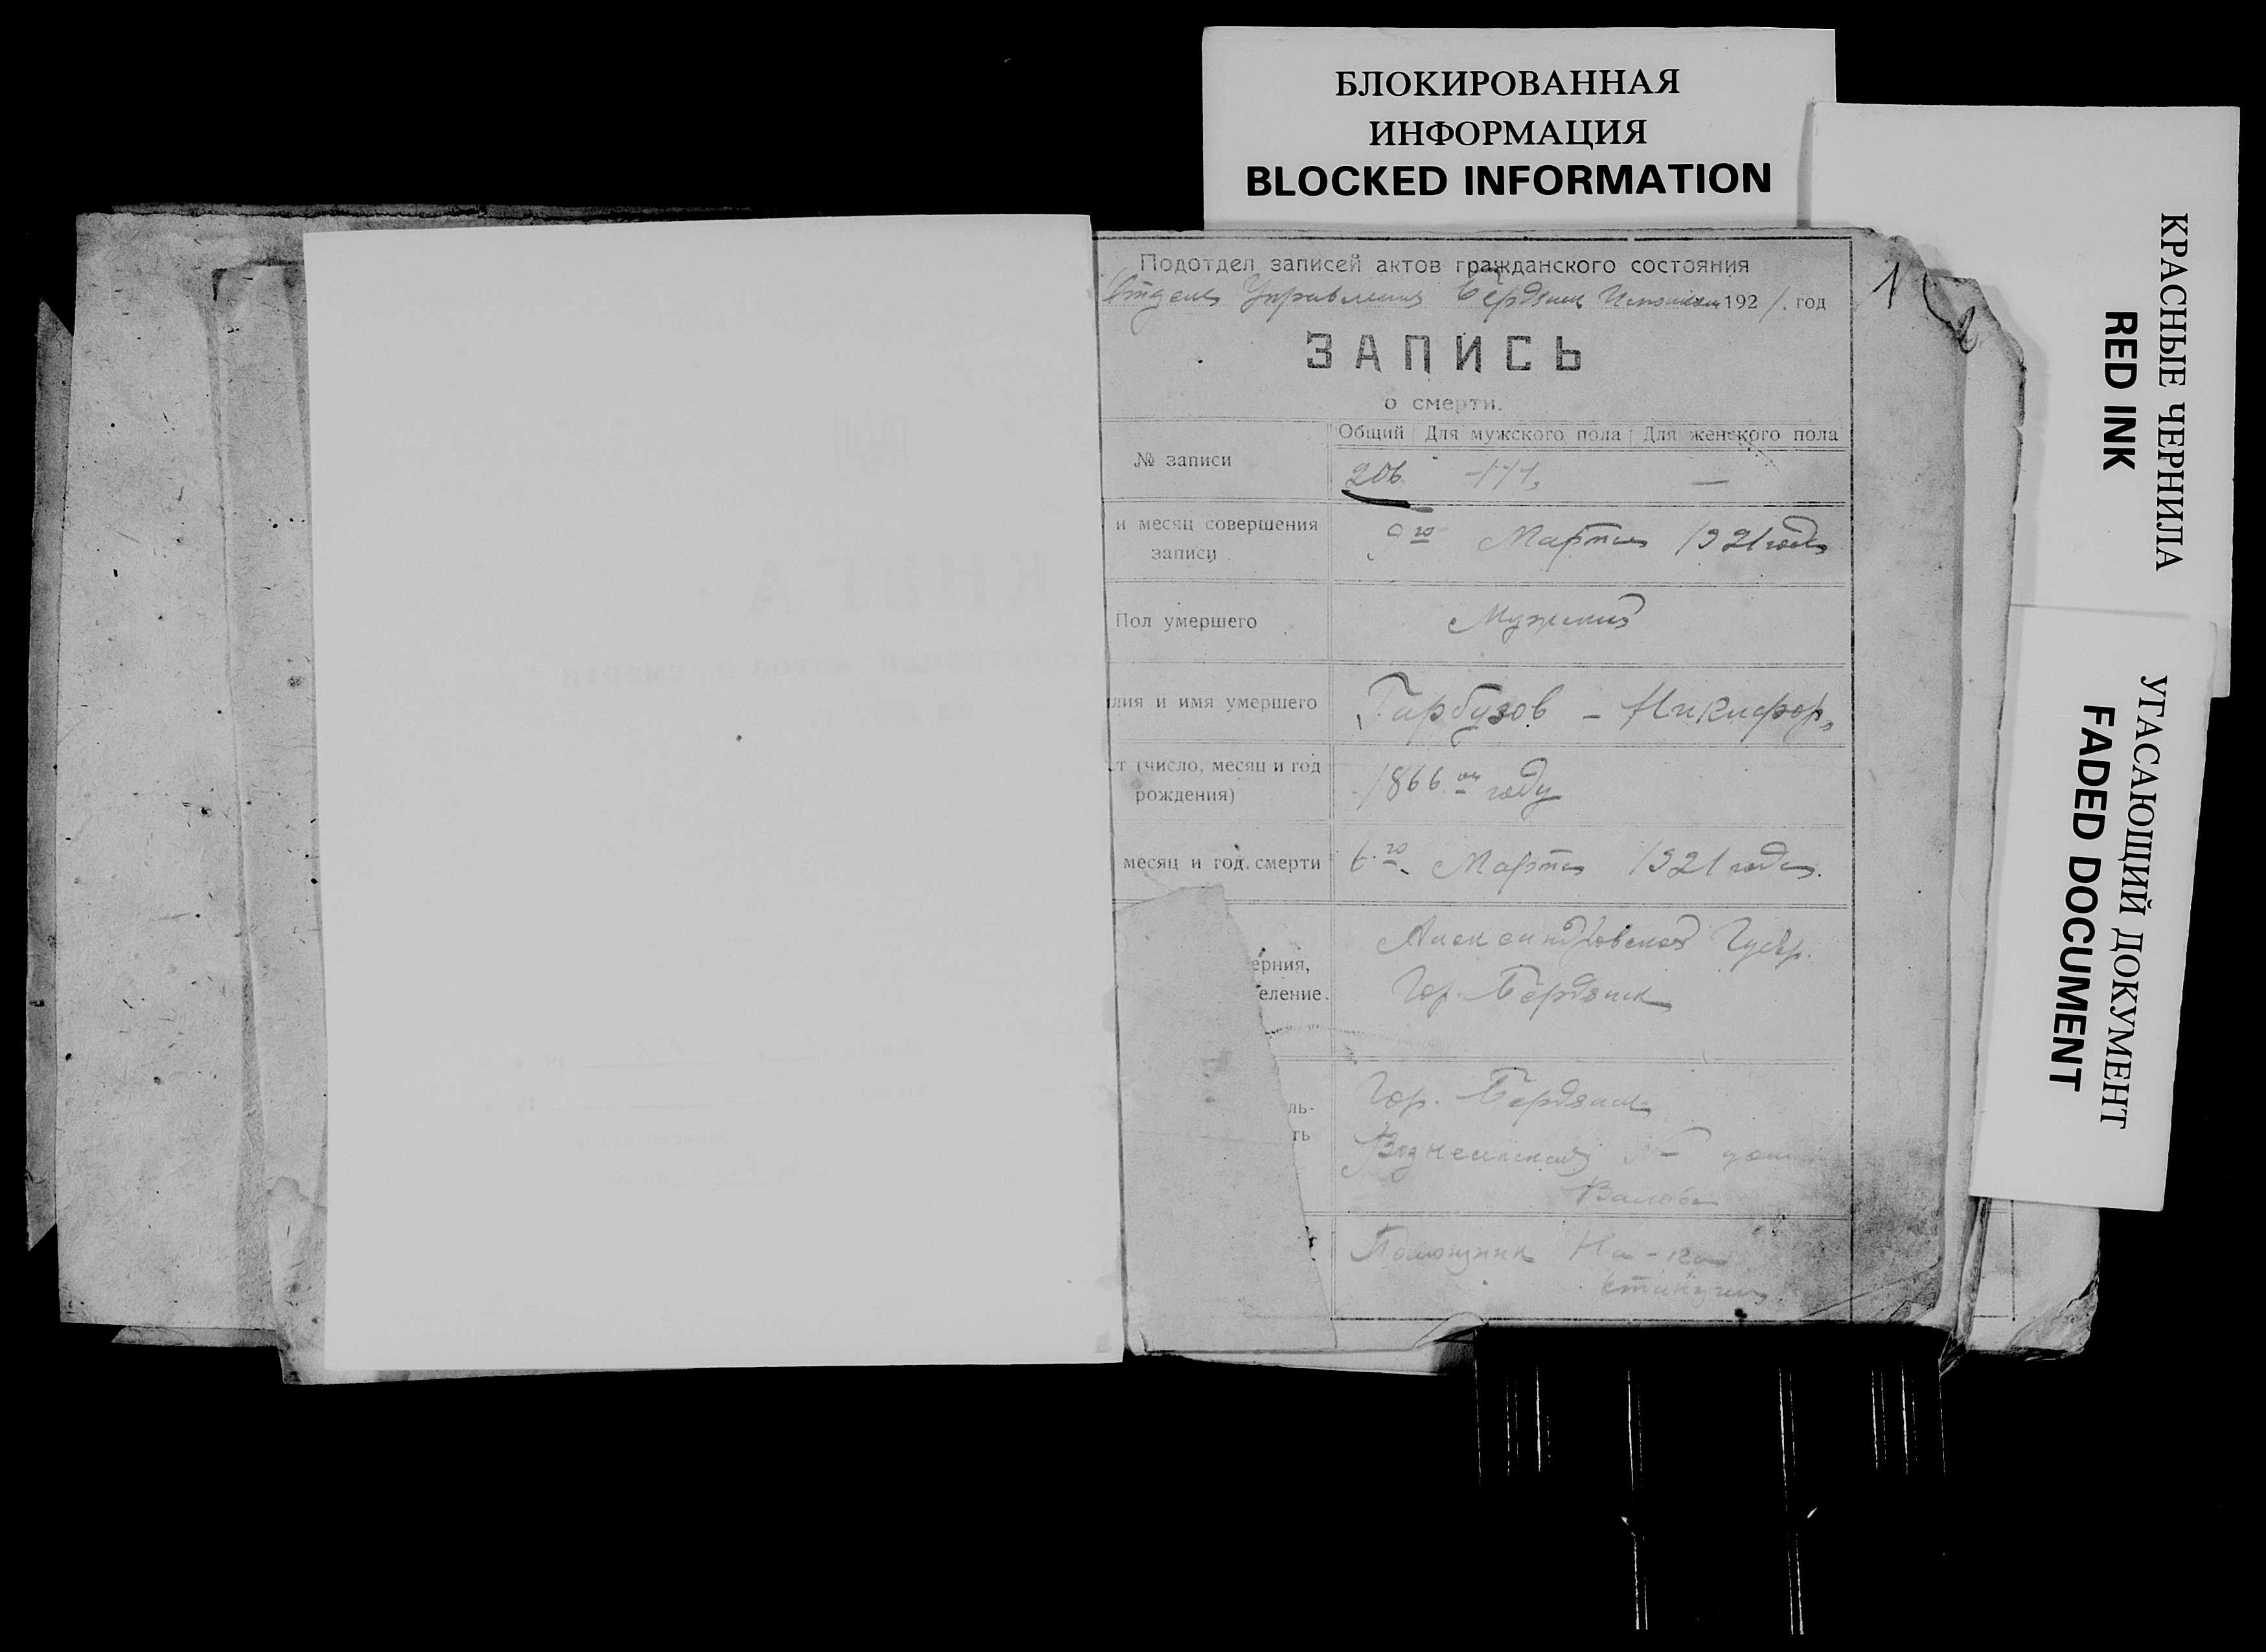 БЛОКИРОВАННАЯ
ИНФОРМАЦИЯ
BLOCKED INFORMATION
КРАСНЫЕ ЧЕРНИЛА
RED INK
УГАСАЮЩИЙ ДОКУМЕНТ
FADED DOCUMENT
1
Подотдел записей актов гражданского состояния
Отдела Управления Бердянск 1921. год
ЗАПИСЬ
о смерти.
Общий Для мужского пола Для женского пола
№ записи 206 —
и месяц совершения
записи
9го Марта 1921 года
Пол умершего Мужской
лия и имя умершего Гарбузов - Никифор,
т (число, месяц и год
рождения)
1866 ом году
месяц и год смерти 6.го Марта 1921 года.
Александровская Губер.
ерния,
еление. Гор. Бердянск
Гор. Бердянск
ль-
ть
Вознесенская дом